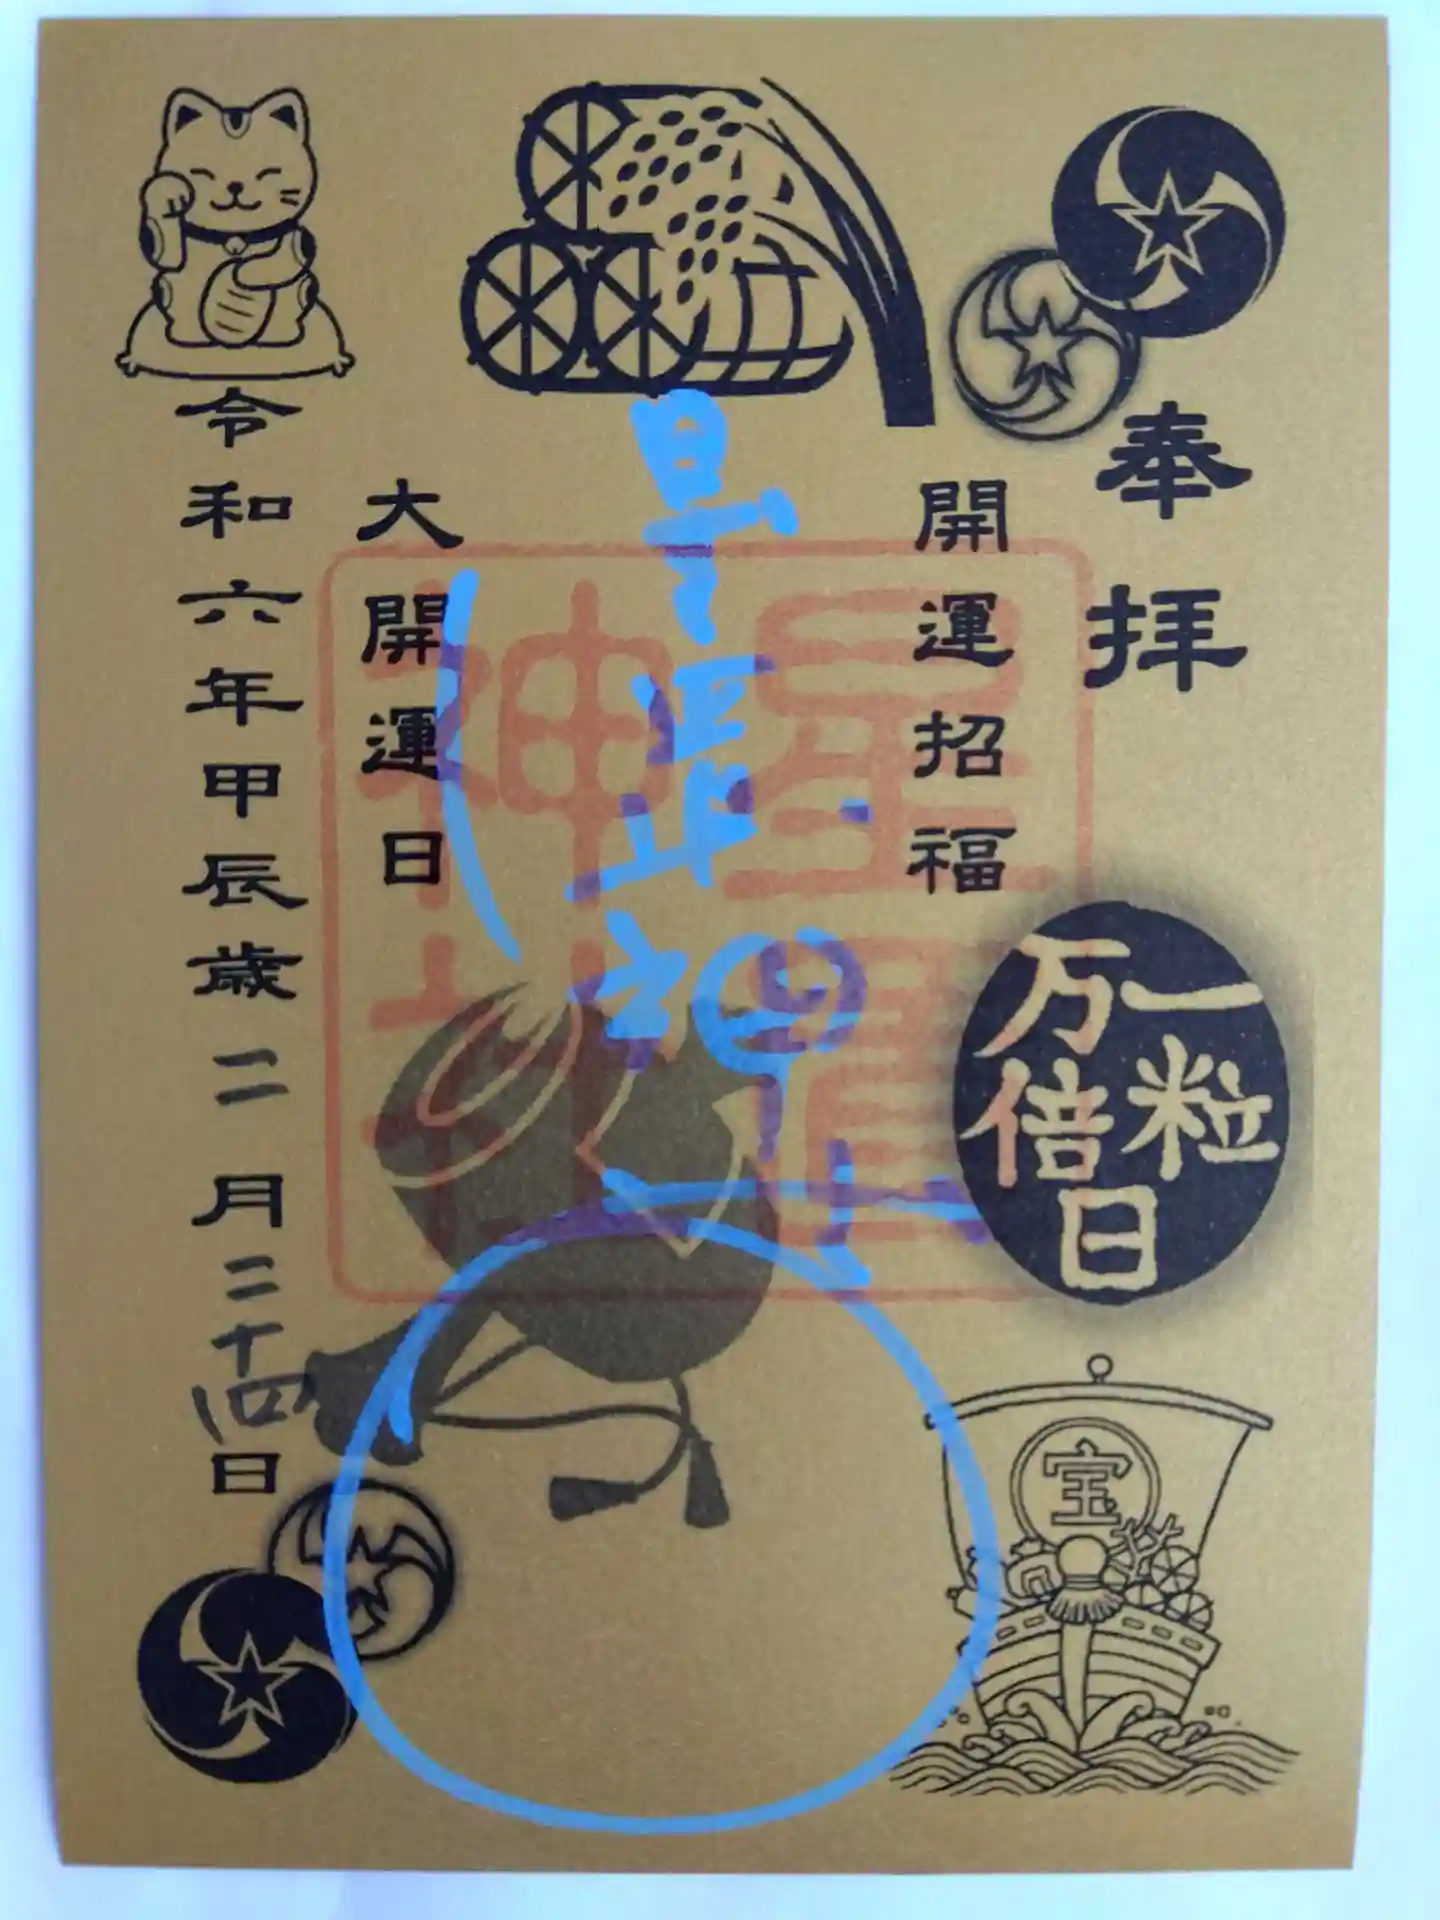 奉拝
開運招福
一粒
万倍
日
宝
星置
神社
大開運日
令和六年甲辰歳二月二十四日